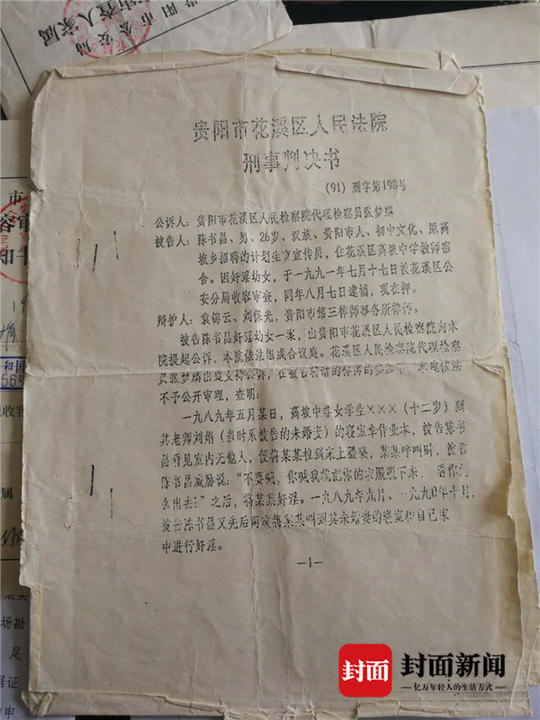 贵阳市花溪区人民法院
刑事判决书
(91) 刑字第198号
公诉人：贵阳市花溪区人民检察院代理检察员张梦
被告人：陈书昌、男、26岁、汉族、贵阳市人、初中文化、原高
坡乡招聘的计划生育宣传员，住花溪区高坡中学教师宿
舍。因奸淫幼女，于一九九一年七月十七日被花溪区公
安分局收容审查，同年八月七日逮捕，现在押。
辩护人：袁锦云、刘俊光，贵阳市第三律师事务所律师。
被告陈书昌奸淫幼女一案，由贵阳市花溪区人民检察院向本
院提起公诉，本院依法组成合议庭。花溪区人民检察院代理检察
员张梦 出庭支持公诉，在被告
不予公开审理，查明：
一九八九年五月某日，高坡中学女学生×××（十二岁）到
其老师刘娟（当时系被告的未婚妻）的寝室拿作业本，被告陈书
昌看见室内无他人，便将某某拉到床上
陈书昌威胁说：“不要喊，你喊我
么出去！”之后，将某某奸淫。一九八九年九月，一九九〇年十月，
被告陈书昌又先后两次将某某叫到其未婚妻的寝室和自己家
中进行奸淫。
—1—
封面
封面新闻
亿万年轻人的生活方式